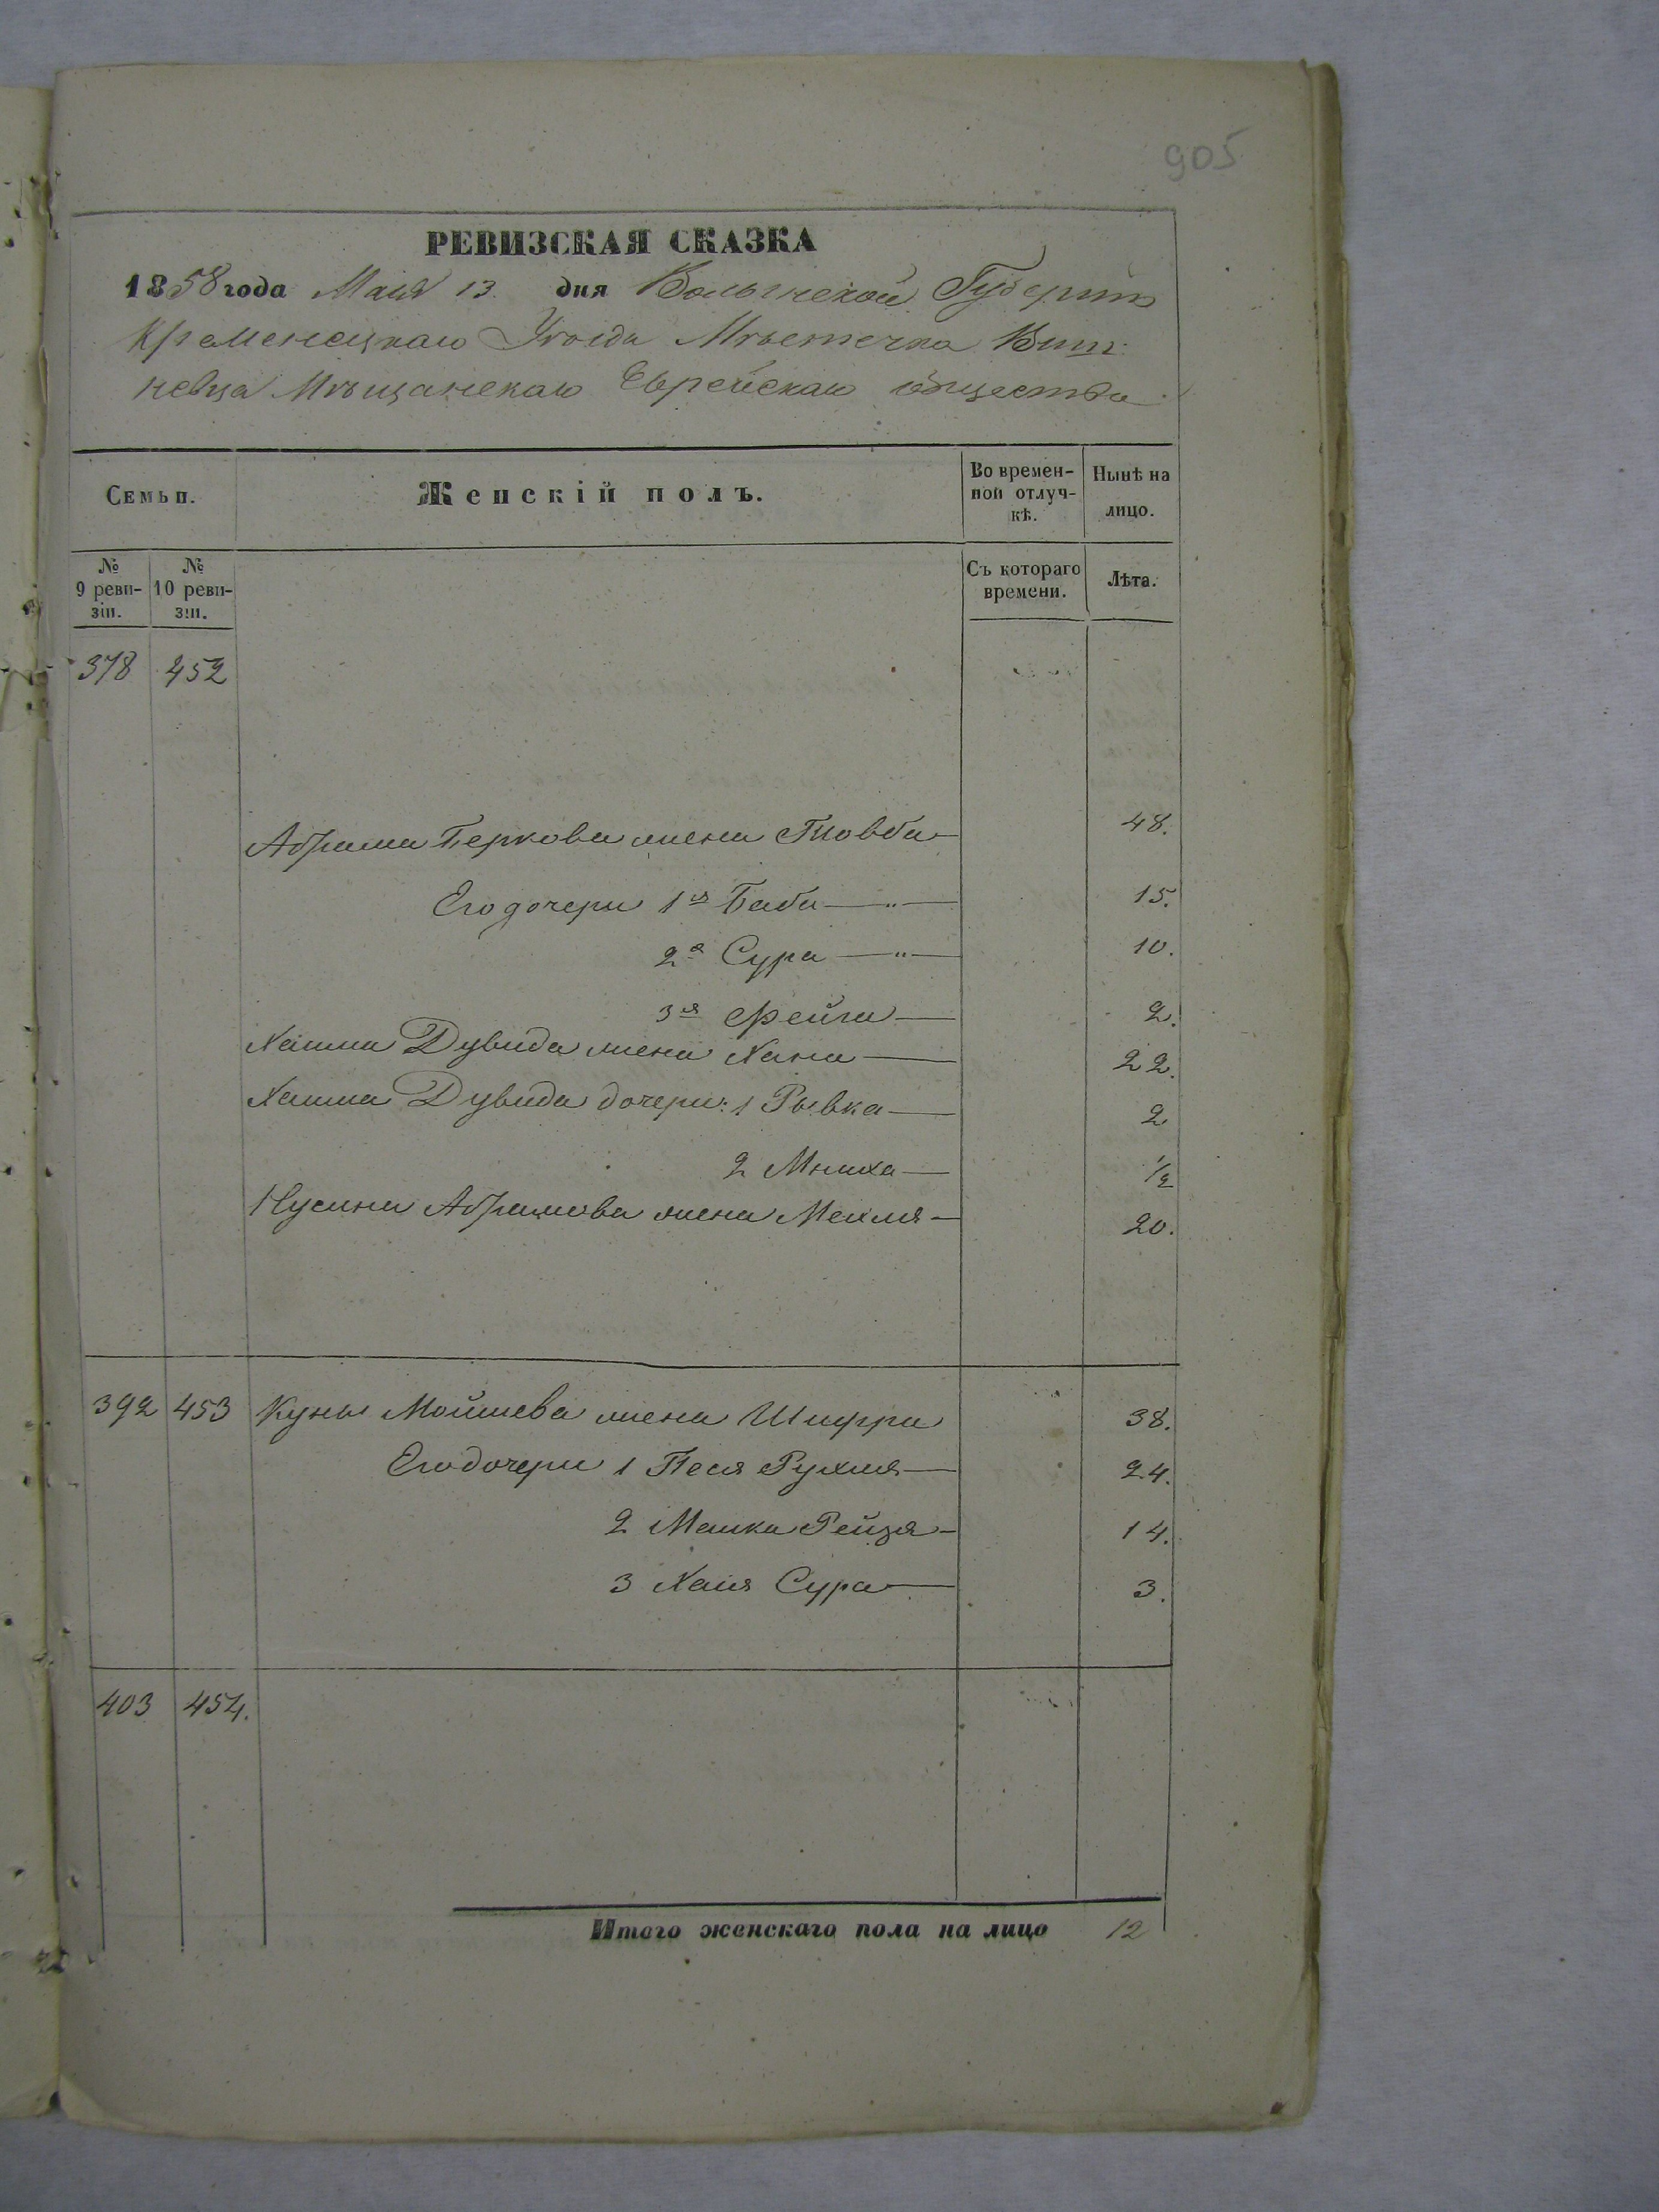 905
РЕВИЗСКАЯ СКАЗКА
1858 года Маія 13. дня Волынской Губерніи
Кременецкаго Уѣзда Мѣстечка Виш:
невца Мѣщанскаго Еврейскаго общества.
Семьи.
Женскій полъ.
Во времен-
ной отлуч-
кѣ.
Нынѣ на
лицо.
№
9 реви-
зіи.
№
10 реви-
зіи.
Съ котораго
времени.
Лѣта.
378 452
Абрама Беркова жена Товба 48.
Его дочери 1я Баба — " — 15.
2я Сура — " — 10.
3я Фейга — 2.
Хаима Дувида жена Хана — 22.
Хаима Дувида дочери: 1 Рывка — 2
2 — 1/2
Нусина Абрамова жена — 20.
392 453 Куны Мойшева жена Шифра 38.
Его дочери 1 Песя Рухля — 24.
2 Рейзя — 14.
3 Хая Сура — 3.
403 454.
Итого женскаго пола на лицо 12